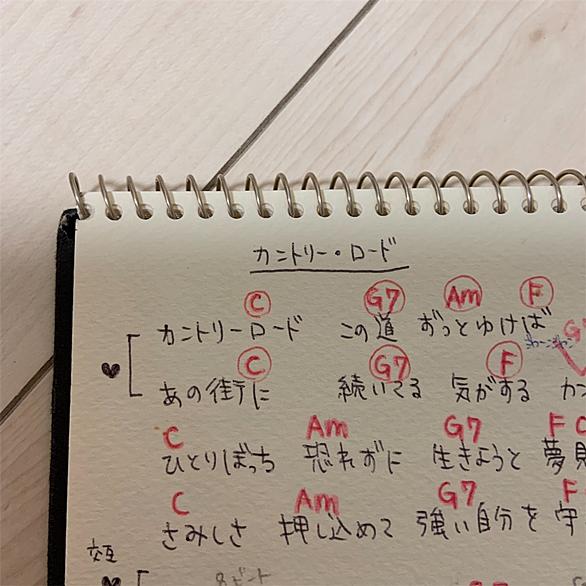 カントリー・ロード
C G7 Am F
カントリーロード この道 ずっとゆけば
C G7 F G
あの街に 続いてる 気がする カン
C Am G7 F C
ひとりぼっち 恐れずに 生きようと 夢見
C Am G7 F
さみしさ 押し込めて 強い自分を 守
交互